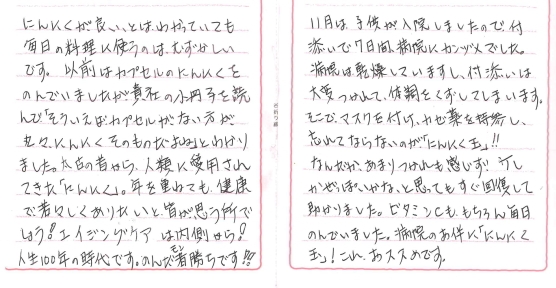 にんにくが良い、とはわかっていても
毎日の料理に使うのはむずかしい
です。以前はカプセルのにんにくを
のんでいましたが貴社の小冊子を読
んで「そういえばカプセルがない方が
丸々にんにくそのものだよね」とわかり
ました。太古の昔から、人類に愛用され
てきた「にんにく」。年を重ねても、健康
で若々しくありたいと皆が思う所で
しょう!エイジングケアは内側から!
人生100年の時代です。のんだ者勝ちです!!
モン
11月は子供が入院しましたので付
添いで7日間、病院にカンヅメでした。
病院は乾燥していますし、付添いは
大変つかれて、体調をくずしてしまいます。
そこでマスクを付け、カゼ薬を持参し、
忘れてならないのが「にんにく玉」!!
なんだか、あまりつかれも感じず!少し
かぜっぽいかな、と思ってもすぐ回復して
助かりました。ビタミンCも、もちろん毎日
のんでいました。病院のお伴に「にんにく
玉」!これ、おススメです。